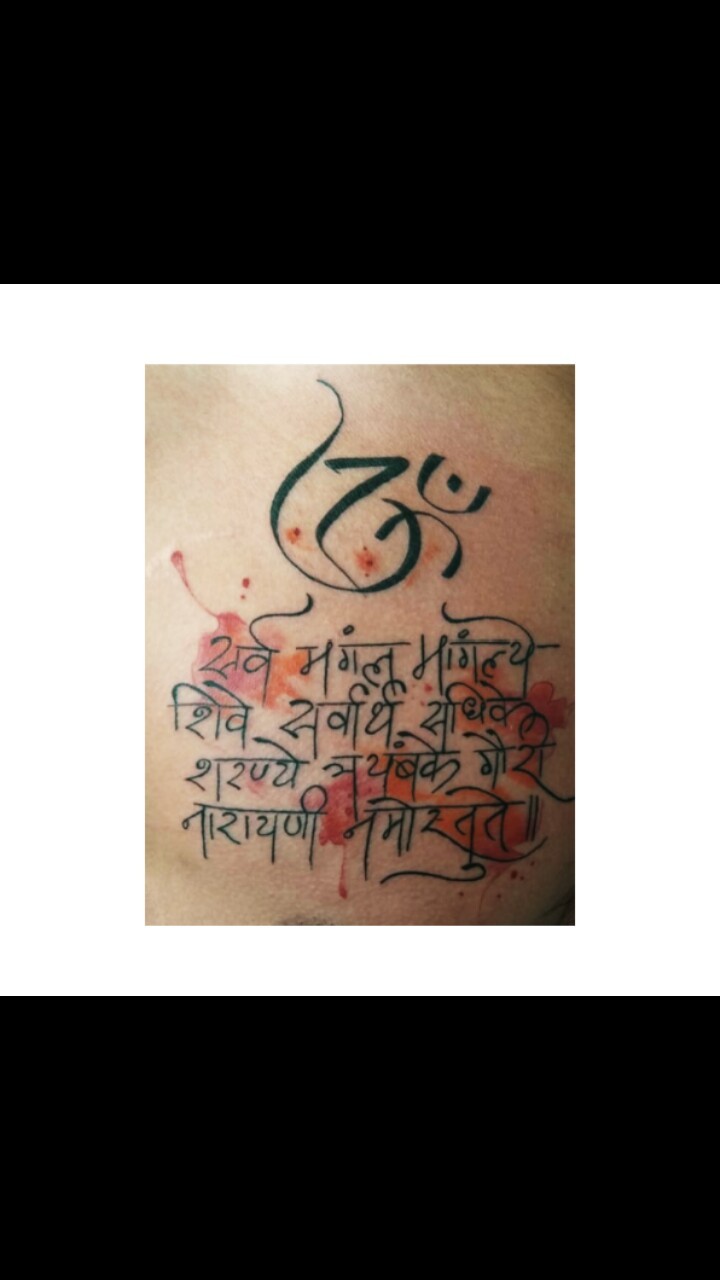 ॐ
सर्व मंगल मांगल्ये
शिवे सर्वार्थ सधिके
शरण्ये त्रयंबंके गौरी
नारायणी नमोस्तुते॥